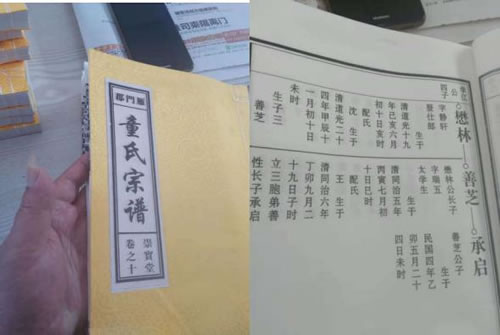 雁門郡
童氏宗譜
崇實堂
卷之十
公
四子
懋林
字静轩
登仕郎
生于
清道光十九
年己亥六月
初十日亥时
配氏
沈 生于
清道光二十
四年甲辰十
一月初十日
未时
生子三
善芝
善芝
懋林公长子
字瑞五
太学生
生于
清同治五年
丙寅七月初
十日巳时
配氏
王 生于
清同治六年
丁卯九月二
十九日子时
立三胞弟善
性长子承启
承启
善芝公子
生于
民国四年乙
卯五月二十
四日未时